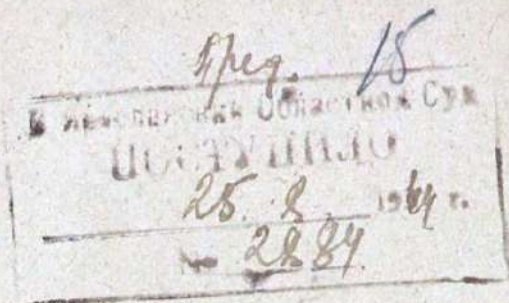 Пред. 15
В Областной Суд
ПОСТУПИЛО
25. 8 1964 г.
№ 2884